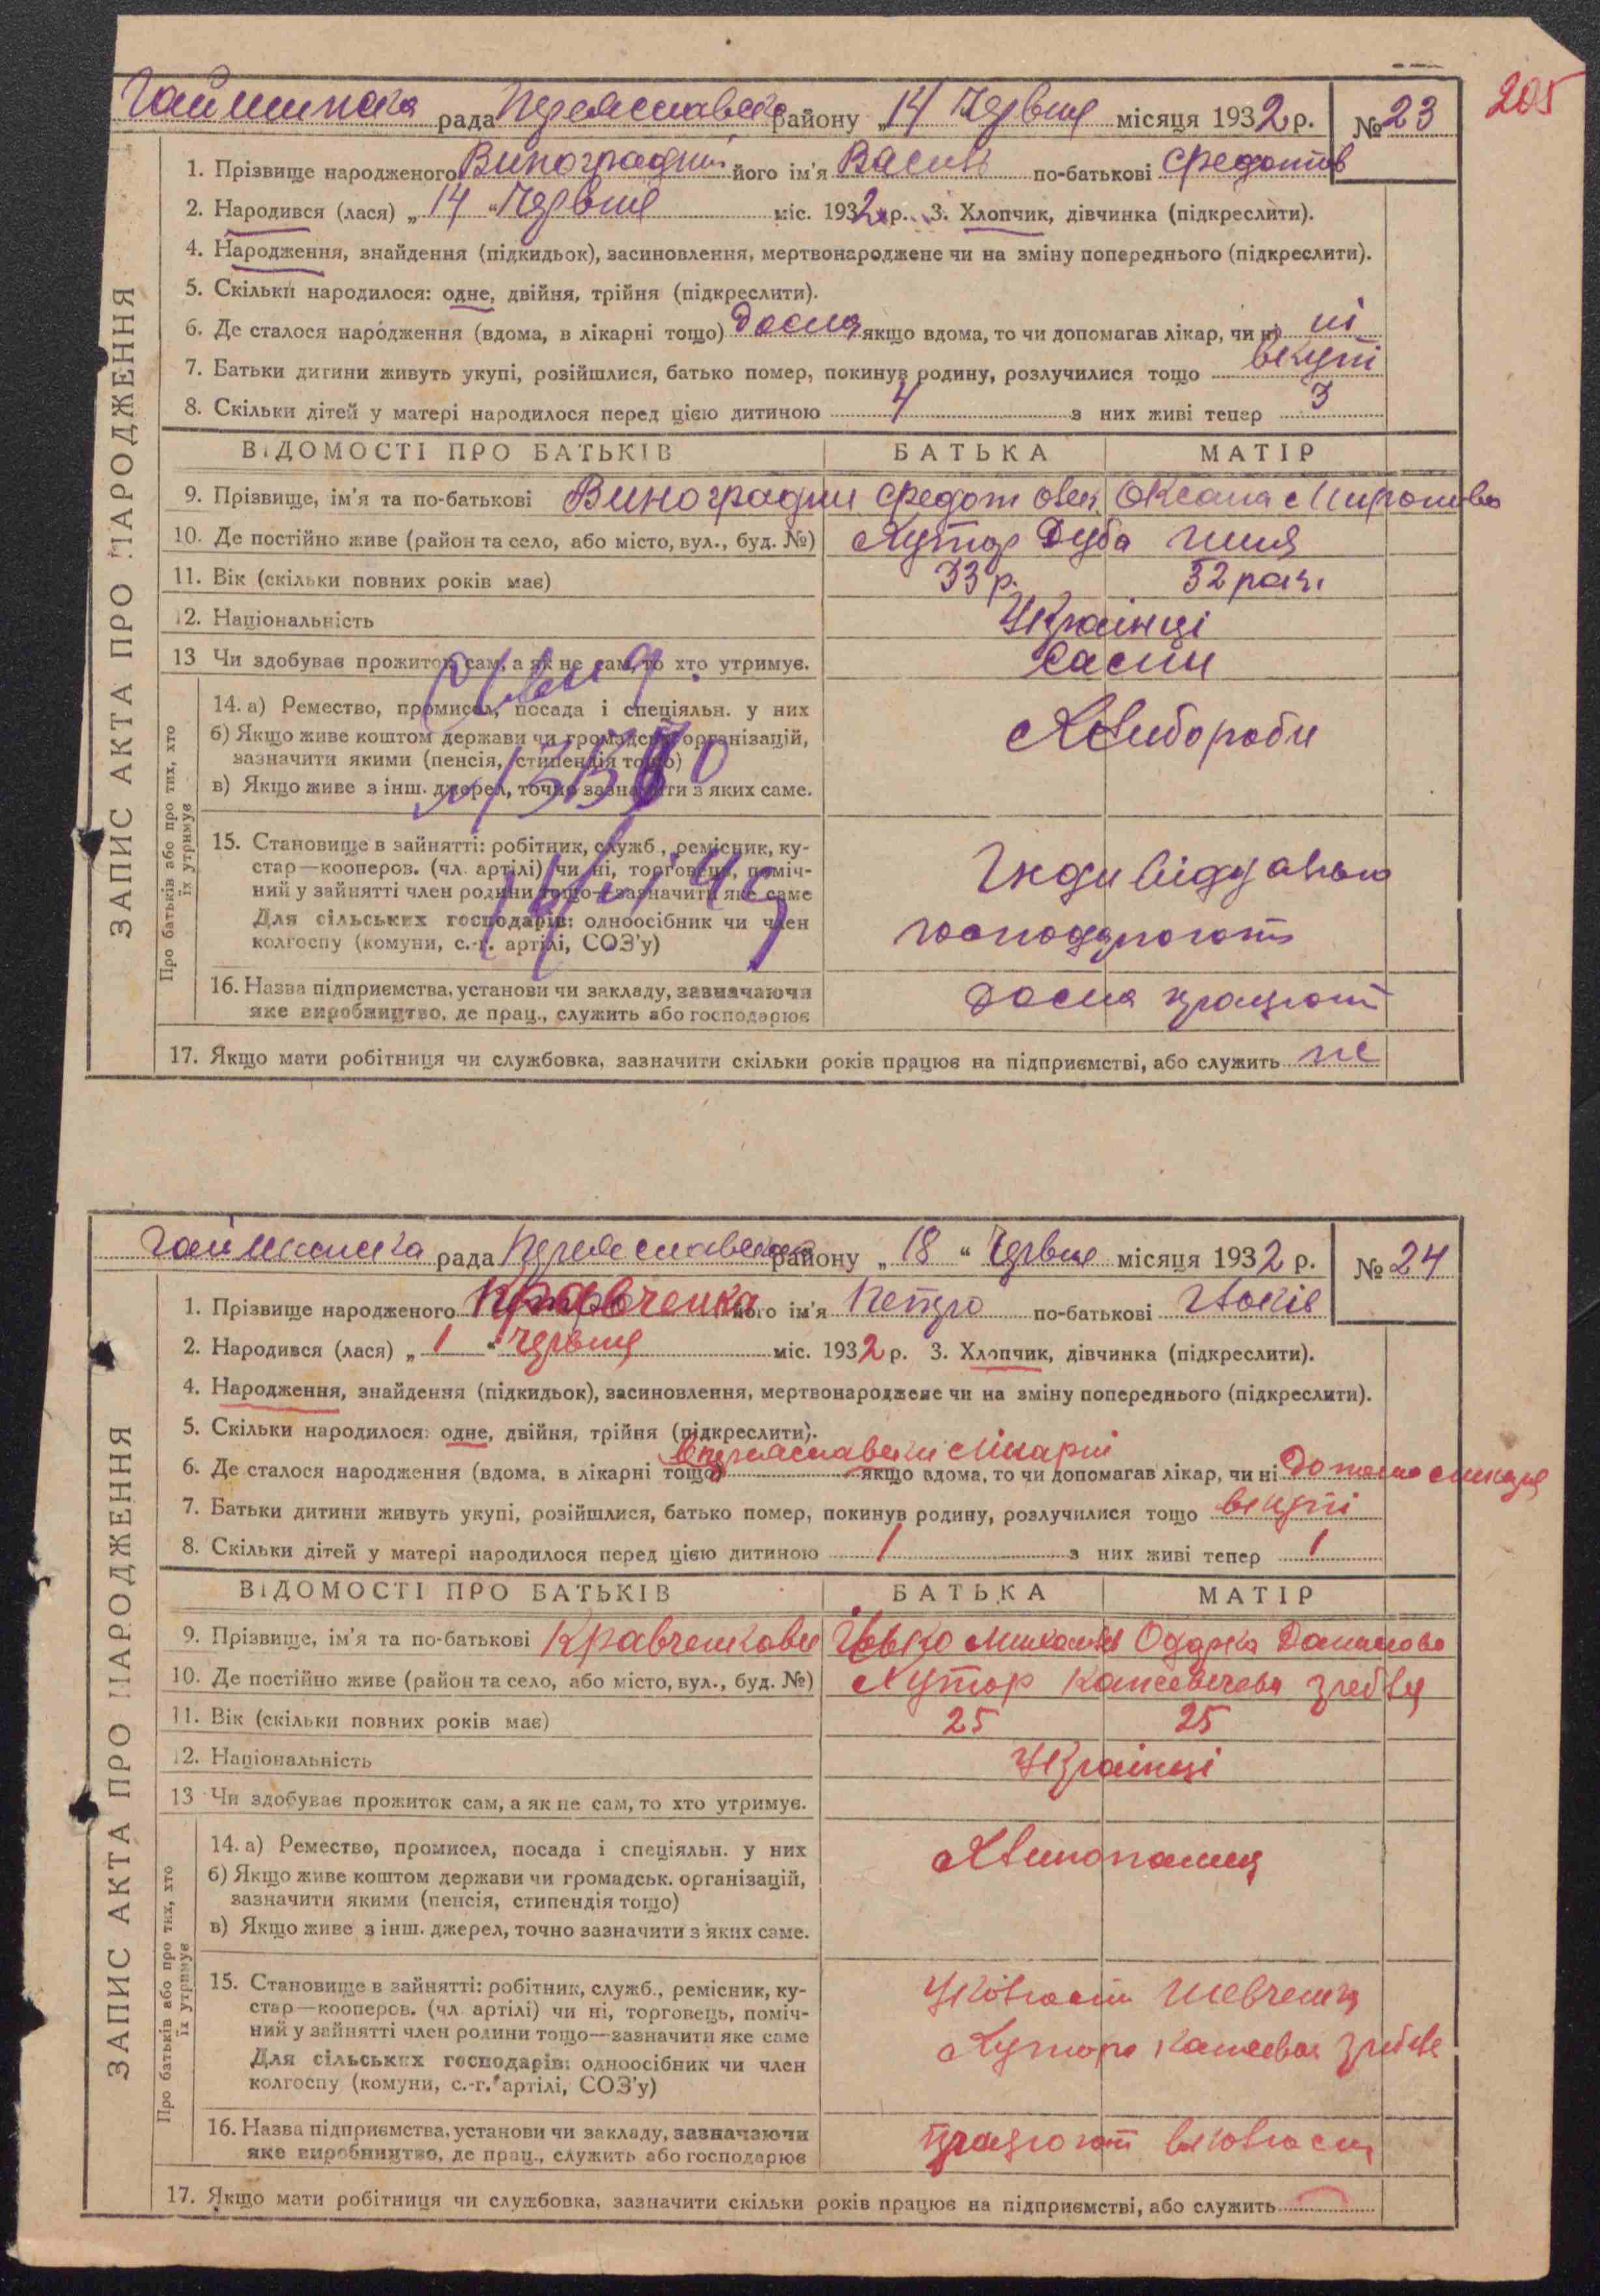 205
Гайшинська рада Переяславськ району „14 Червня місяця 1932 р. № 23
ЗАПИС АКТА ПРО НАРОДЖЕННЯ
1. Прізвище народженого Виноградний його ім'я Василь по-батькові Федотов
2. Народився (лася) „14 “ Червня міс. 1932 р. 3. Хлопчик, дівчинка (підкреслити).
4. Народження, знайдення (підкидьок), засиновлення, мертвонароджене чи на зміну попереднього (підкреслити).
5. Скільки народилося: одне, двійня, трійня (підкреслити).
6. Де сталося народження (вдома, в лікарні тощо) Дома якщо вдома, то чи допомагав лікар, чи ні ні
7. Батьки дитини живуть укупі, розійшлися, батько помер, покинув родину, розлучилися тощо вкупі
8. Скільки дітей у матері народилося перед цією дитиною 4 з них живі тепер 3
ВІДОМОСТІ ПРО БАТЬКІВ БАТЬКА МАТІР
9. Прізвище, ім'я та по-батькові Виноградни Федот Оксана Миронівна
10. Де постійно живе (район та село, або місто, вул., буд. №) Хутор Дуба
11. Вік (скільки повних років має) 33 р. 32 роки
12. Національність Українці
13 Чи здобуває прожиток сам, а як не сам, то хто утримує. Сами
Про батьків або про тих, хто їх утримує
14. а) Ремество, промисел, посада і спеціяльн. у них Хлибороби
б) Якщо живе коштом держави чи громадськ. організацій,
зазначити якими (пенсія, стипендія тощо)
в) Якщо живе з інш. джерел, точно зазначити з яких саме.
15. Становище в зайнятті: робітник, служб., ремісник, ку-
стар—кооперов. (чл. артілі) чи ні, торговець, поміч-
ний у зайнятті член родини тощо—зазначити яке саме
Для сільських господарів: одноосібник чи член
колгоспу (комуни, с.-г. артілі, СОЗ'у)
Индивідуально
господарюют
16. Назва підприємства, установи чи закладу, зазначаючи
яке виробництво, де прац., служить або господарює
Дома працюют
17. Якщо мати робітниця чи службовка, зазначити скільки років працює на підприємстві, або служить не
Гайшинська рада Переяславська району „18 “ Червня місяця 1932 р. № 24
ЗАПИС АКТА ПРО НАРОДЖЕННЯ
1. Прізвище народженого Кравченка його ім'я Петро по-батькові
2. Народився (лася) „1 “ червня міс. 1932 р. 3. Хлопчик, дівчинка (підкреслити).
4. Народження, знайдення (підкидьок), засиновлення, мертвонароджене чи на зміну попереднього (підкреслити).
5. Скільки народилося: одне, двійня, трійня (підкреслити).
6. Де сталося народження (вдома, в лікарні тощо) лікарні якщо вдома, то чи допомагав лікар, чи ні
7. Батьки дитини живуть укупі, розійшлися, батько помер, покинув родину, розлучилися тощо вкупі
8. Скільки дітей у матері народилося перед цією дитиною 1 з них живі тепер 1
ВІДОМОСТІ ПРО БАТЬКІВ БАТЬКА МАТІР
9. Прізвище, ім'я та по-батькові Кравченкови Одарка
10. Де постійно живе (район та село, або місто, вул., буд. №) Хутор
11. Вік (скільки повних років має) 25 25
12. Національність Українці
13 Чи здобуває прожиток сам, а як не сам, то хто утримує.
Про батьків або про тих, хто їх утримує
14. а) Ремество, промисел, посада і спеціяльн. у них
б) Якщо живе коштом держави чи громадськ. організацій,
зазначити якими (пенсія, стипендія тощо)
в) Якщо живе з інш. джерел, точно зазначити з яких саме.
15. Становище в зайнятті: робітник, служб., ремісник, ку-
стар—кооперов. (чл. артілі) чи ні, торговець, поміч-
ний у зайнятті член родини тощо—зазначити яке саме
Для сільських господарів: одноосібник чи член
колгоспу (комуни, с.-г. артілі, СОЗ'у)
Шевченка
Хутора
16. Назва підприємства, установи чи закладу, зазначаючи
яке виробництво, де прац., служить або господарює
працюют
17. Якщо мати робітниця чи службовка, зазначити скільки років працює на підприємстві, або служить